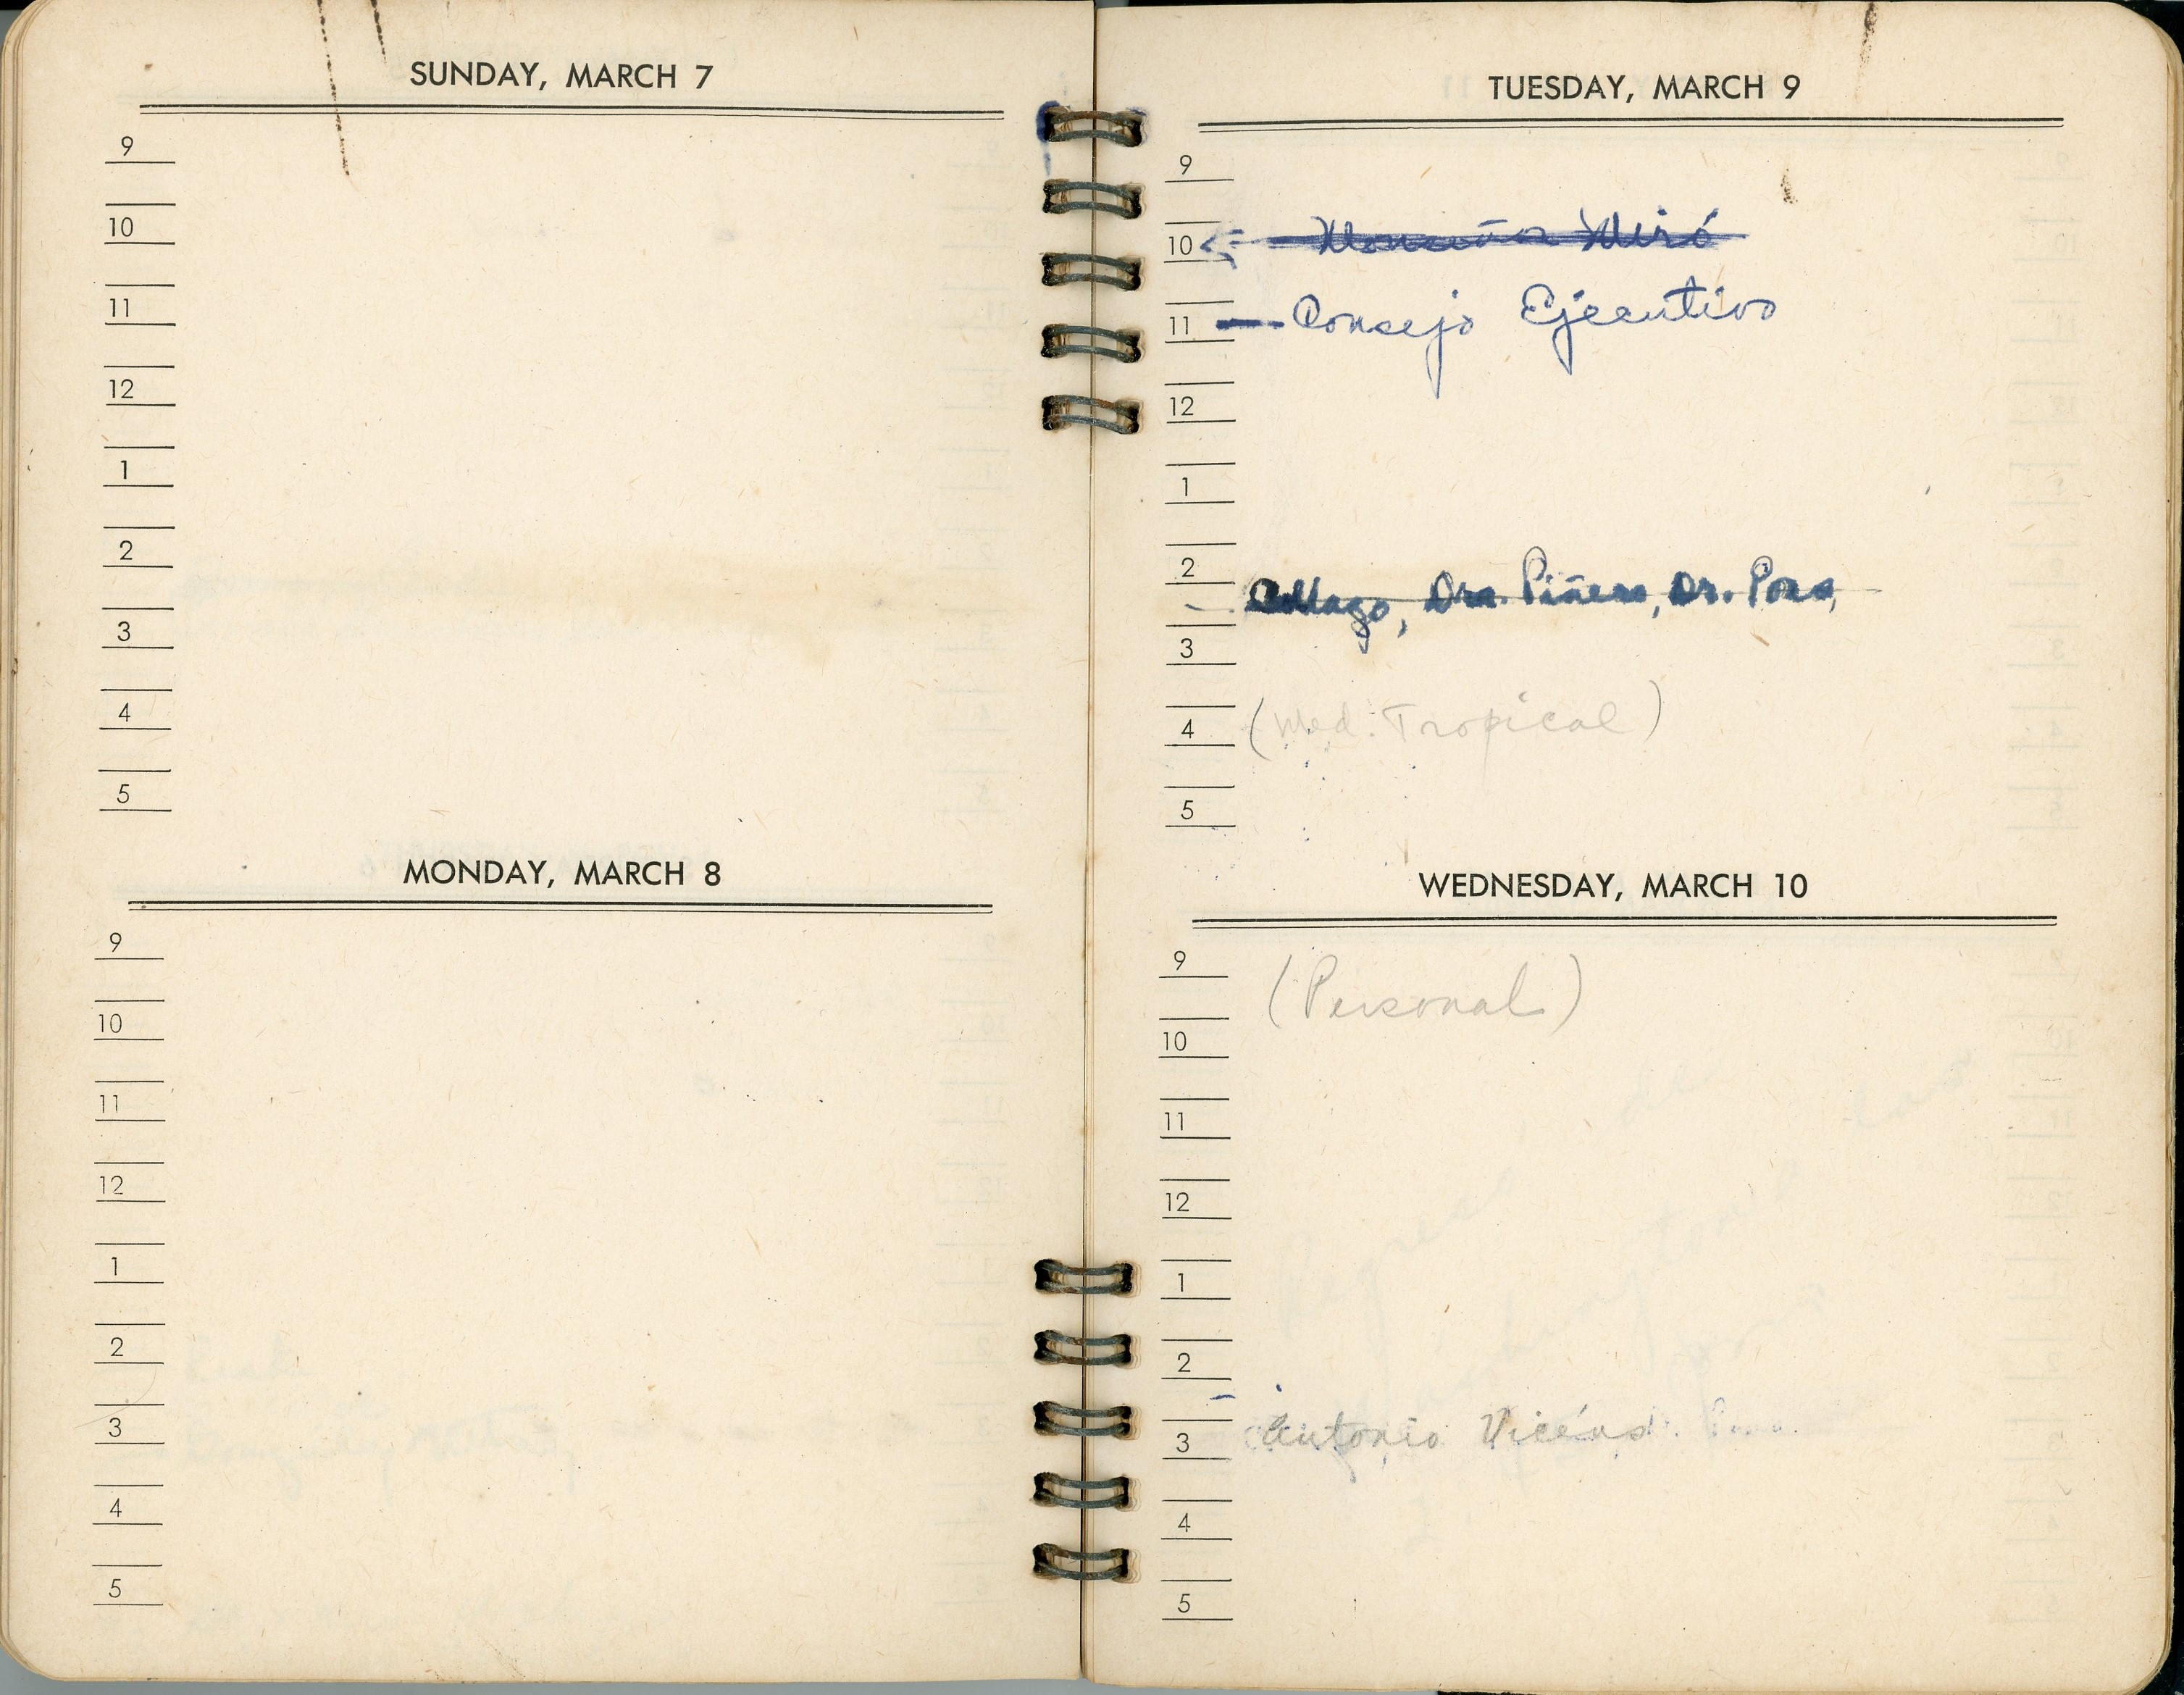 SUNDAY, MARCH 7
9
10
11
12
1
2
3
4
5
MONDAY, MARCH 8
9
10
11
12
1
2
3
4
5
TUESDAY, MARCH 9
9
10 Monseñor Miró
11 — Consejo Ejecutivo
12
1
2
Collago, Dra. Piñero, Dr. Pons,
3
(Med. Tropical)
4
5
WEDNESDAY, MARCH 10
9
(Personal)
10
11
12
1
2
3 Antonio Vicéns
4
5